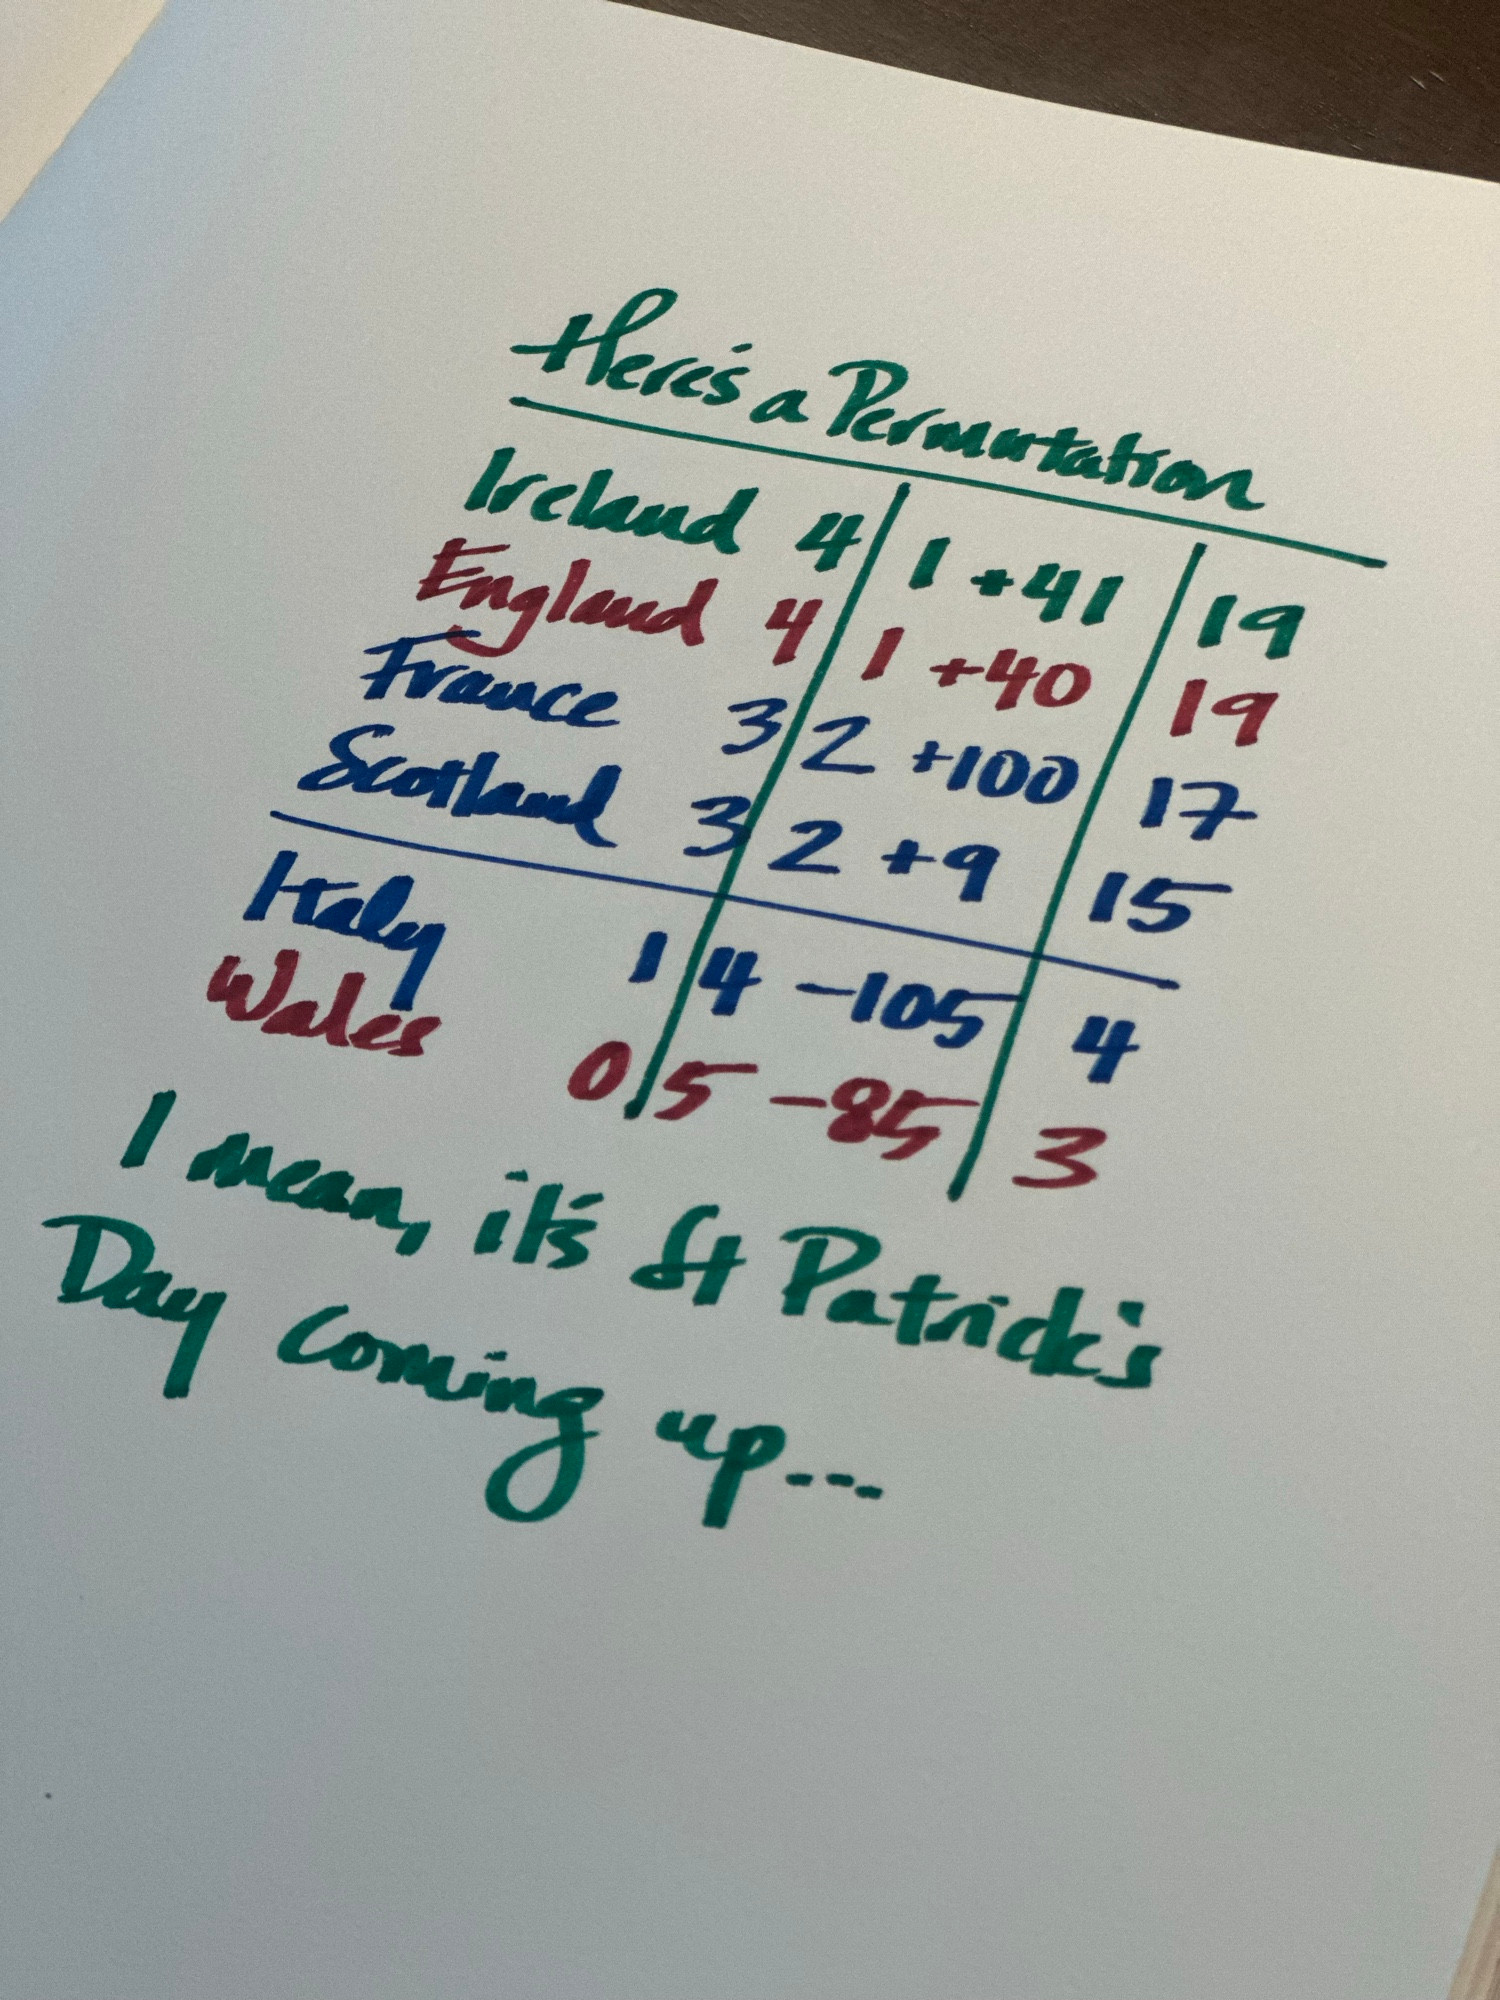 Here's a Permutation
Ireland 4 1 +41 19
England 4 1 +40 19
France 3 2 +100 17
Scotland 3 2 +9 15
Italy 1 4 -105 4
Wales 0 5 -85 3
I mean, it's St Patrick's
Day coming up...